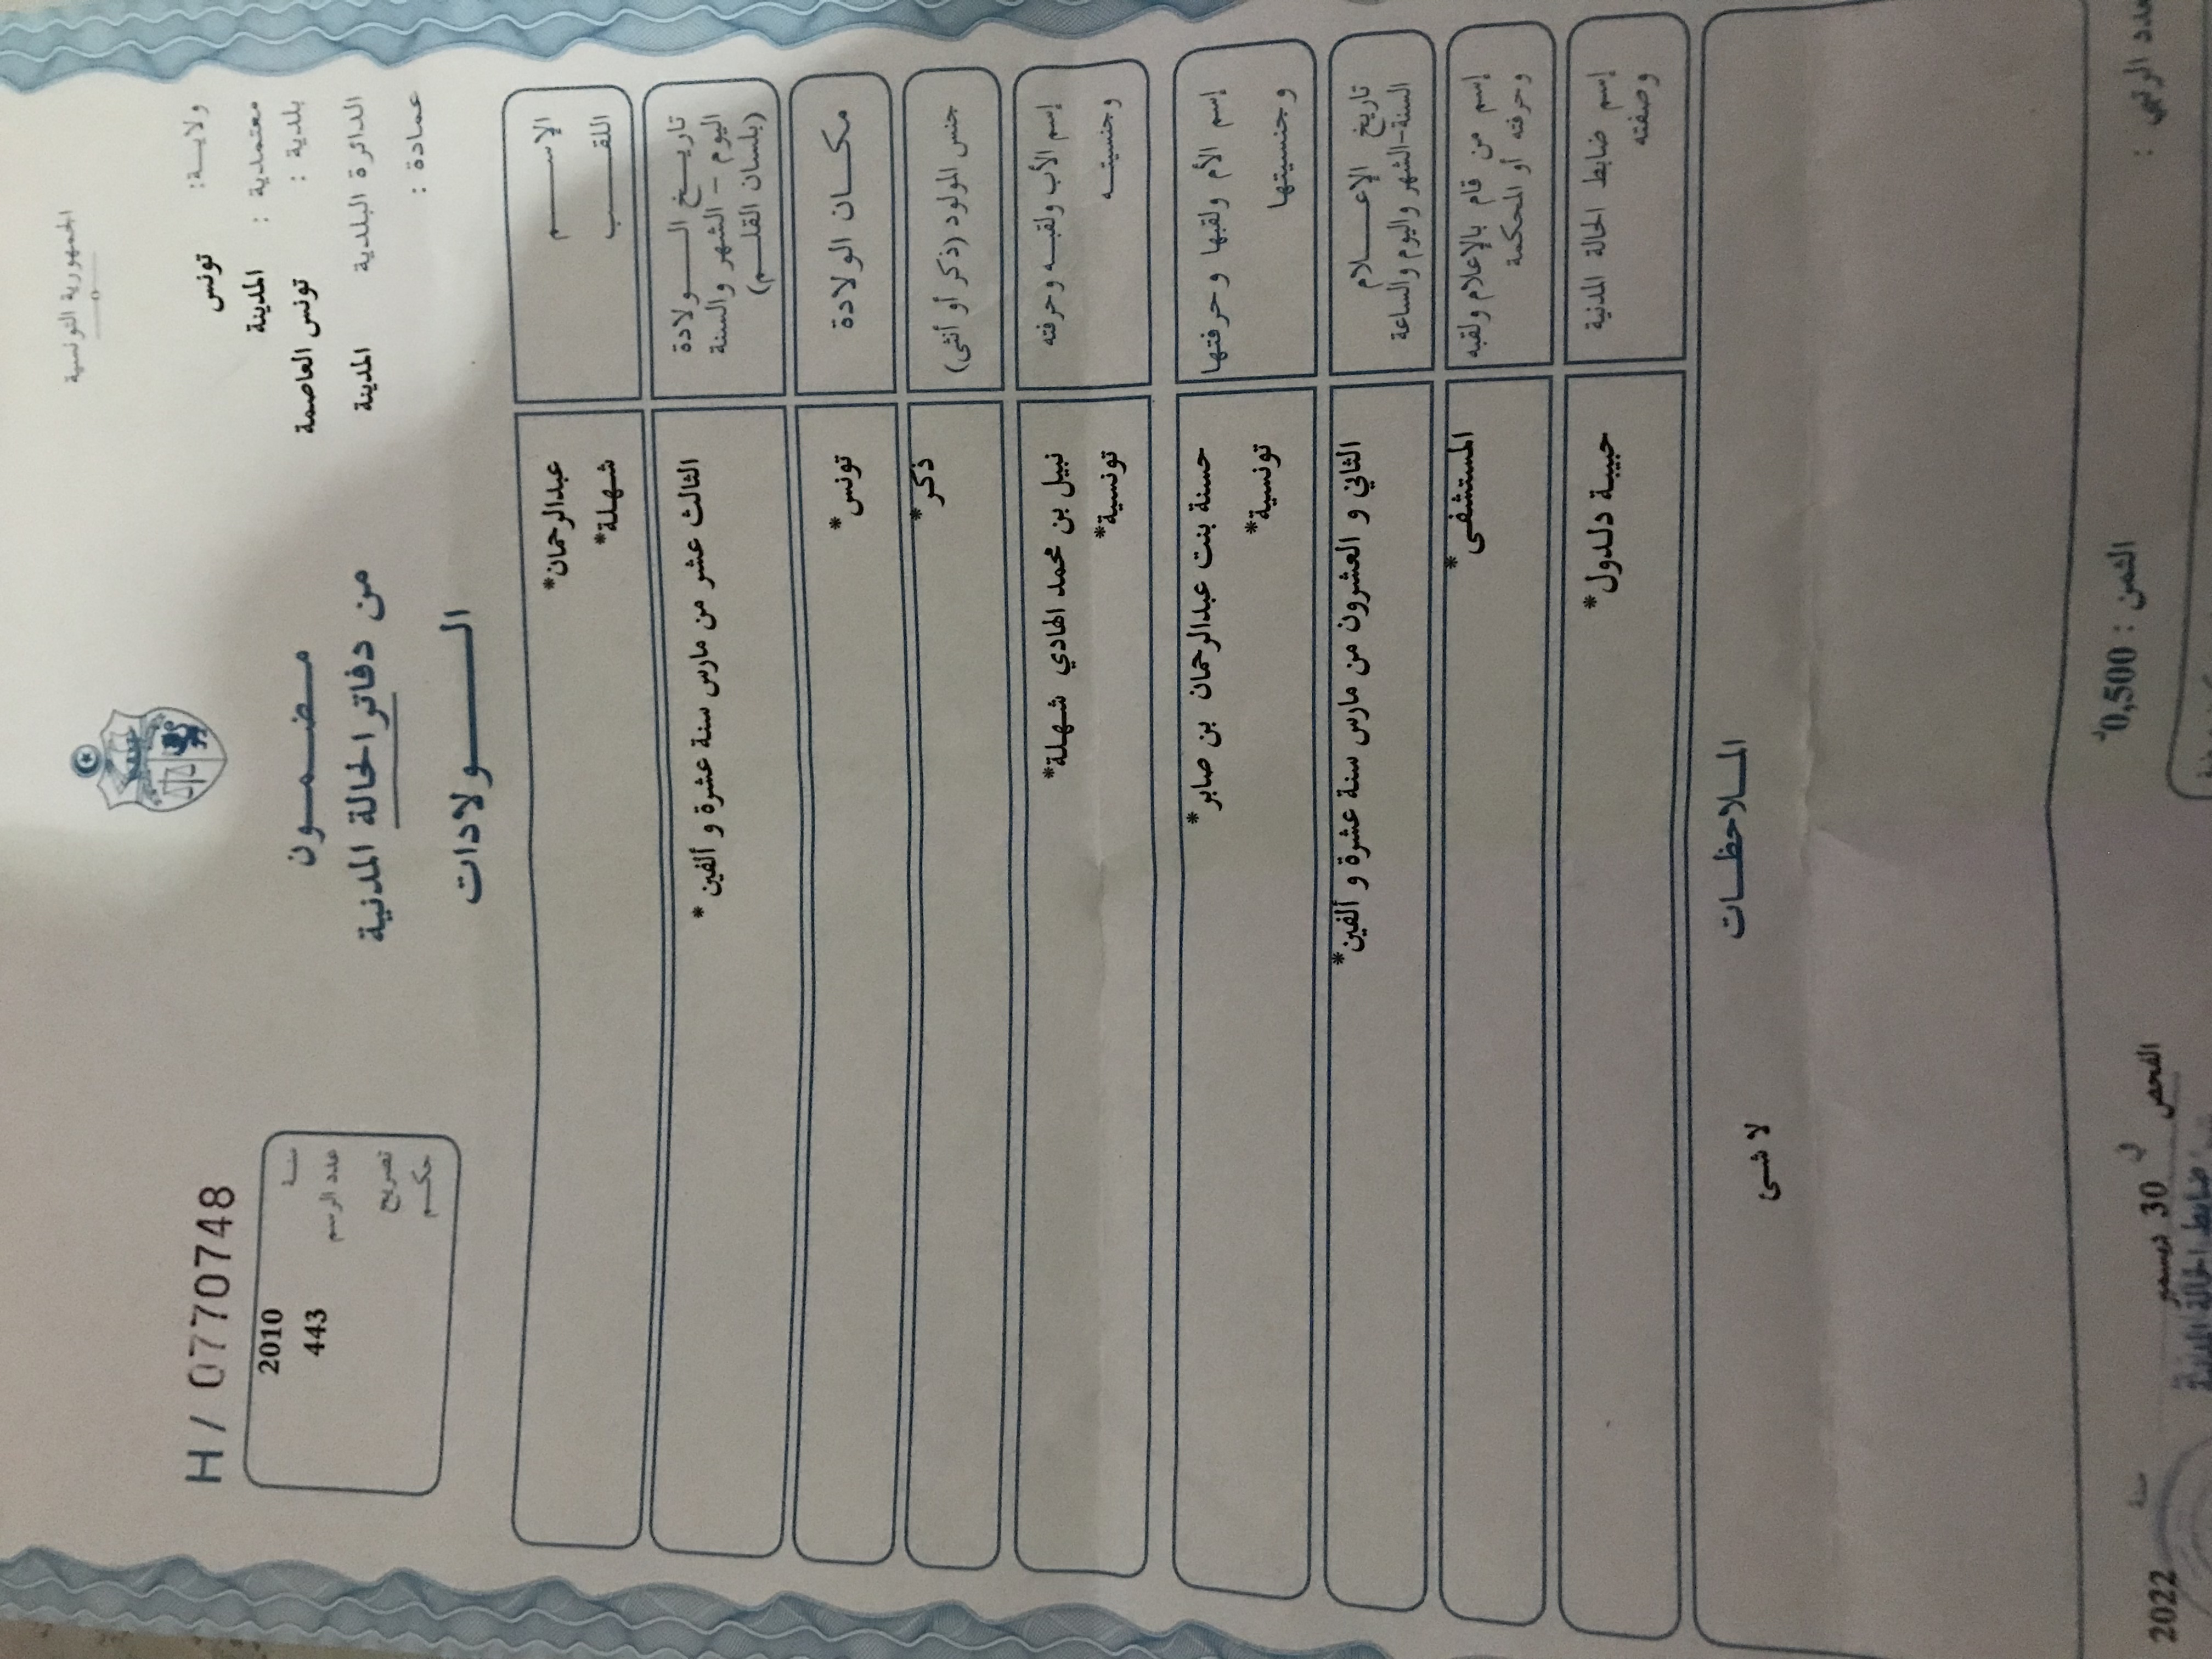 الجمهورية التونسية
ولايــة: تونس
معتمدية : المدينة
بلدية : تونس العاصمة
الدائرة البلدية المدينة
عمادة :
مـضـمــون
من دفاتر الحالة المدنية
الـــولادات
H / 0770748
سنــة 2010
عدد الرسم 443
تصريح
حكــم
الإســـــم عبدالرحمان*
اللقـــــب شهلة*
تاريــخ الـــولادة
اليوم – الشهر والسنة
(بلسان القلــم)
الثالث عشر من مارس سنة عشرة و ألفين *
مكــان الولادة تونس*
جنس المولود (ذكر أو أنثى) ذكر*
إسم الأب ولقبــه وحرفته نبيل بن محمد الهادي شهلة*
وجنسيتــه تونسية*
إسم الأم ولقبها وحرفتها حسنة بنت عبدالرحمان بن صابر*
وجنسيتها تونسية*
تاريخ الإعـــلام
السنة-الشهر واليوم والساعة
الثاني و العشرون من مارس سنة عشرة و ألفين*
إسم من قام بالإعلام ولقبه
وحرفته أو المحكمة
المستشفى*
إسم ضابط الحالة المدنية
وصفته
حبيبة دلدول*
المـلاحظـات
لا شئ
الثمن : 0,500
الفحص في 30 ديسمبر سنة 2022
ضابط الحالة المدنية